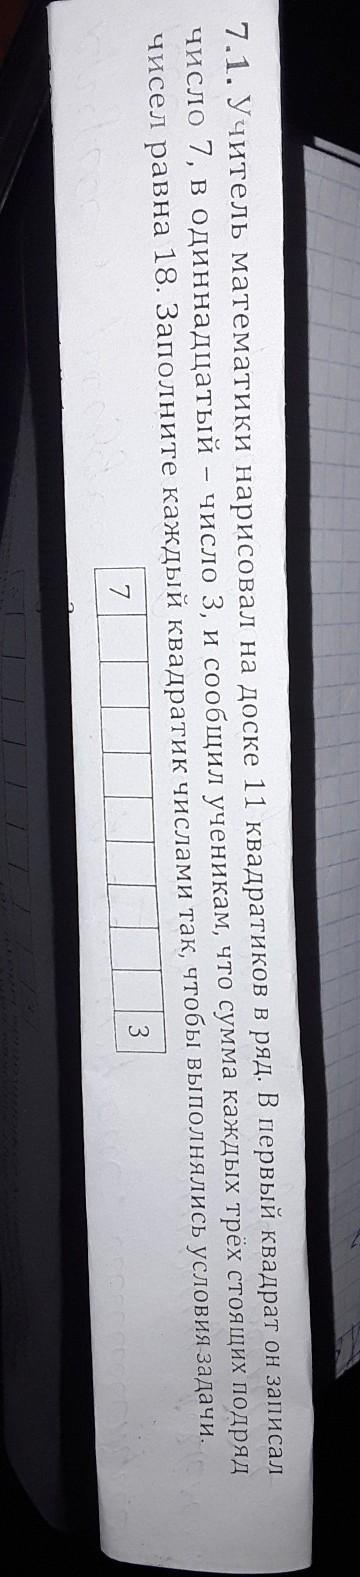 7.1. Учитель математики нарисовал на доске 11 квадратиков в ряд. В первый квадрат он записал
число 7, в одиннадцатый – число 3, и сообщил ученикам, что сумма каждых трёх стоящих подряд
чисел равна 18. Заполните каждый квадратик числами так, чтобы выполнялись условия задачи.
7 3